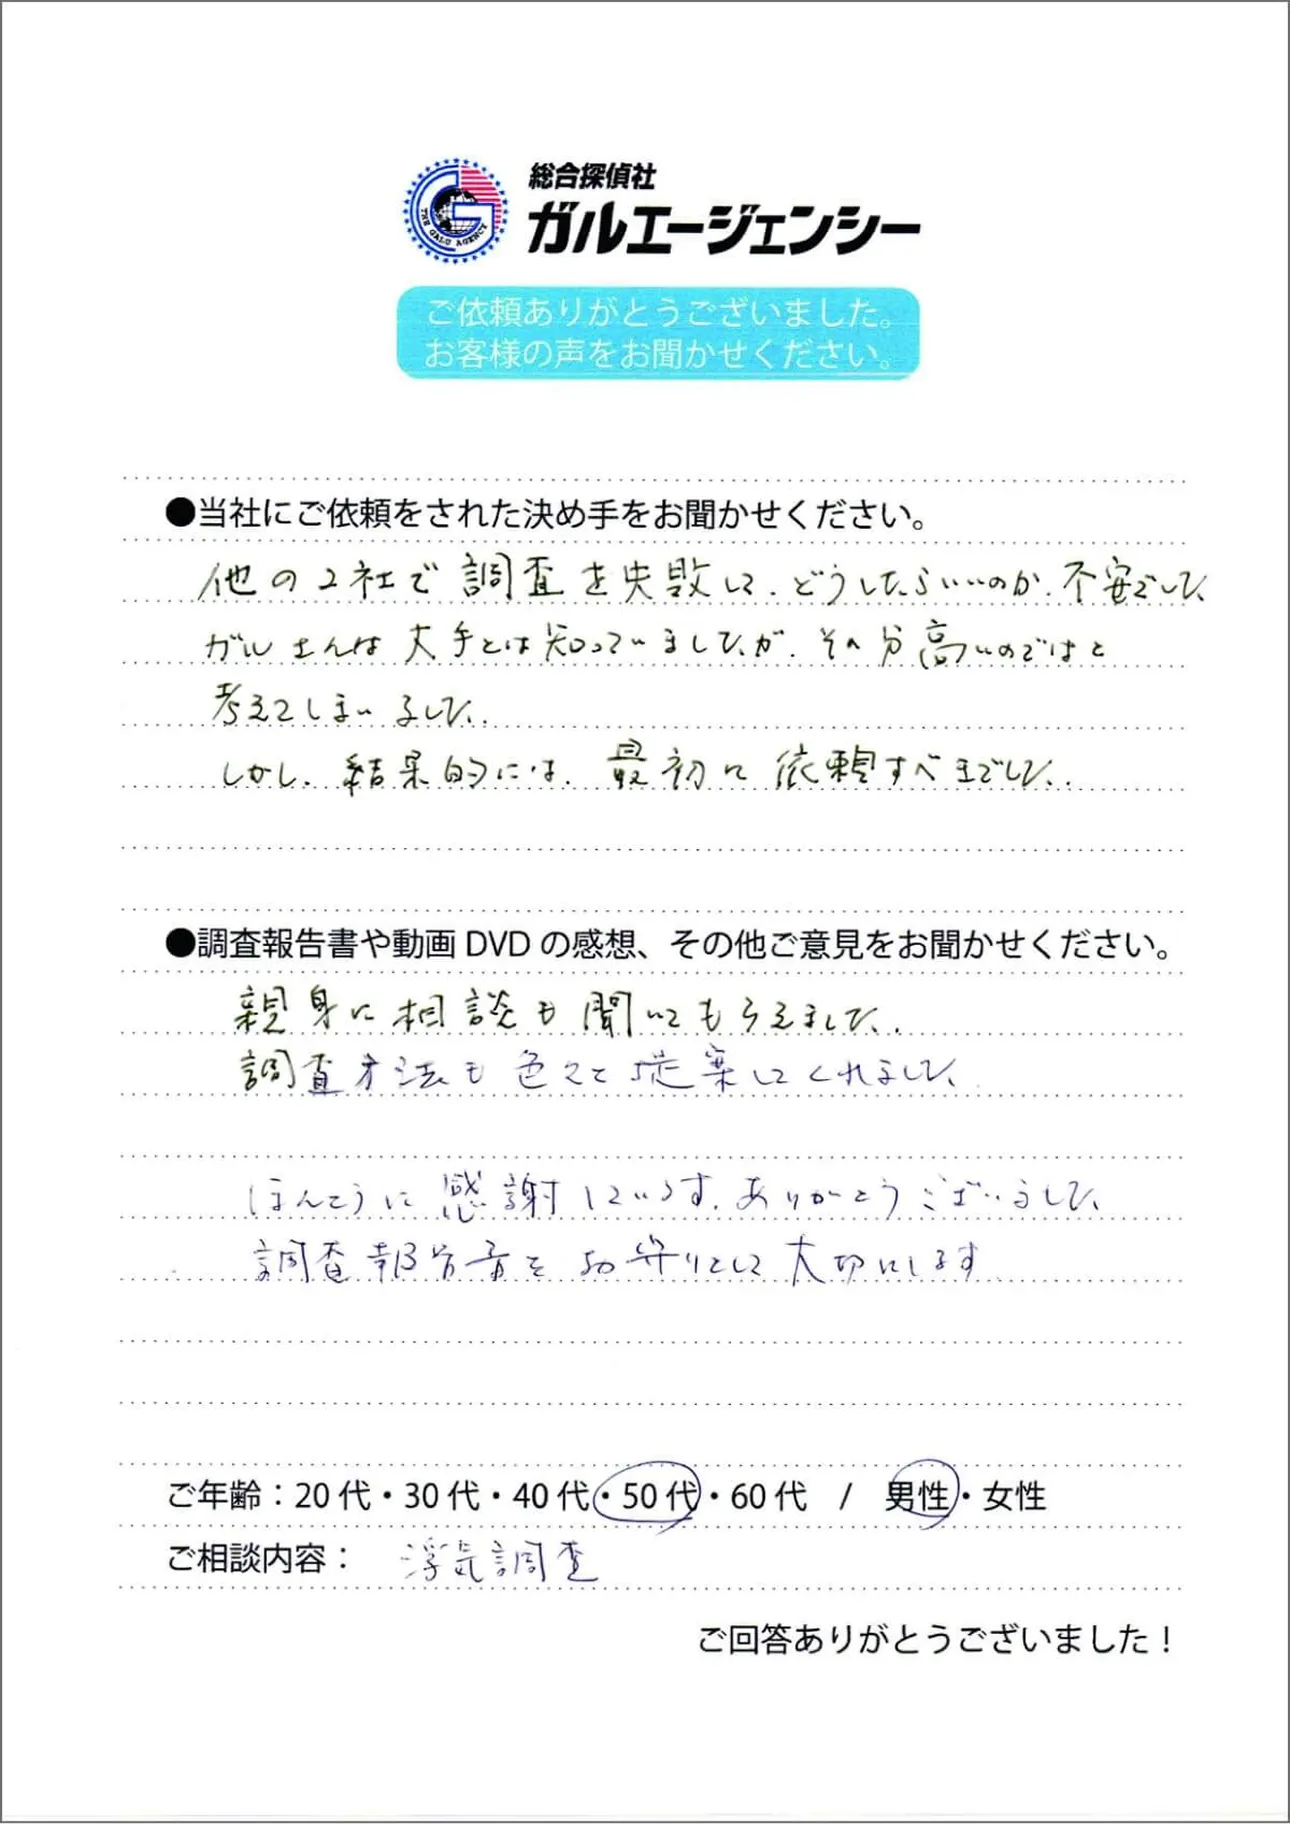 THE GALU AGENCY
総合探偵社
ガルエージェンシー
ご依頼ありがとうございました。
お客様の声をお聞かせください。
●当社にご依頼をされた決め手をお聞かせください。
他の2社で調査を失敗して、どうしたらいいのか、不安でした
ガルさんは大手とは知っていましたが、その分高いのではと
考えてしまいました。
しかし、結果的には、最初に依頼すべきでした。
●調査報告書や動画DVDの感想、その他ご意見をお聞かせください。
親身に相談も聞いてもらえました。
調査方法も色々と提案してくれました。
ほんとうに感謝しています。ありがとうございました
調査報告書をお守りとして大切にします
ご年齢：20代・30代・40代・50代・60代 / 男性・女性
ご相談内容： 浮気調査
ご回答ありがとうございました！